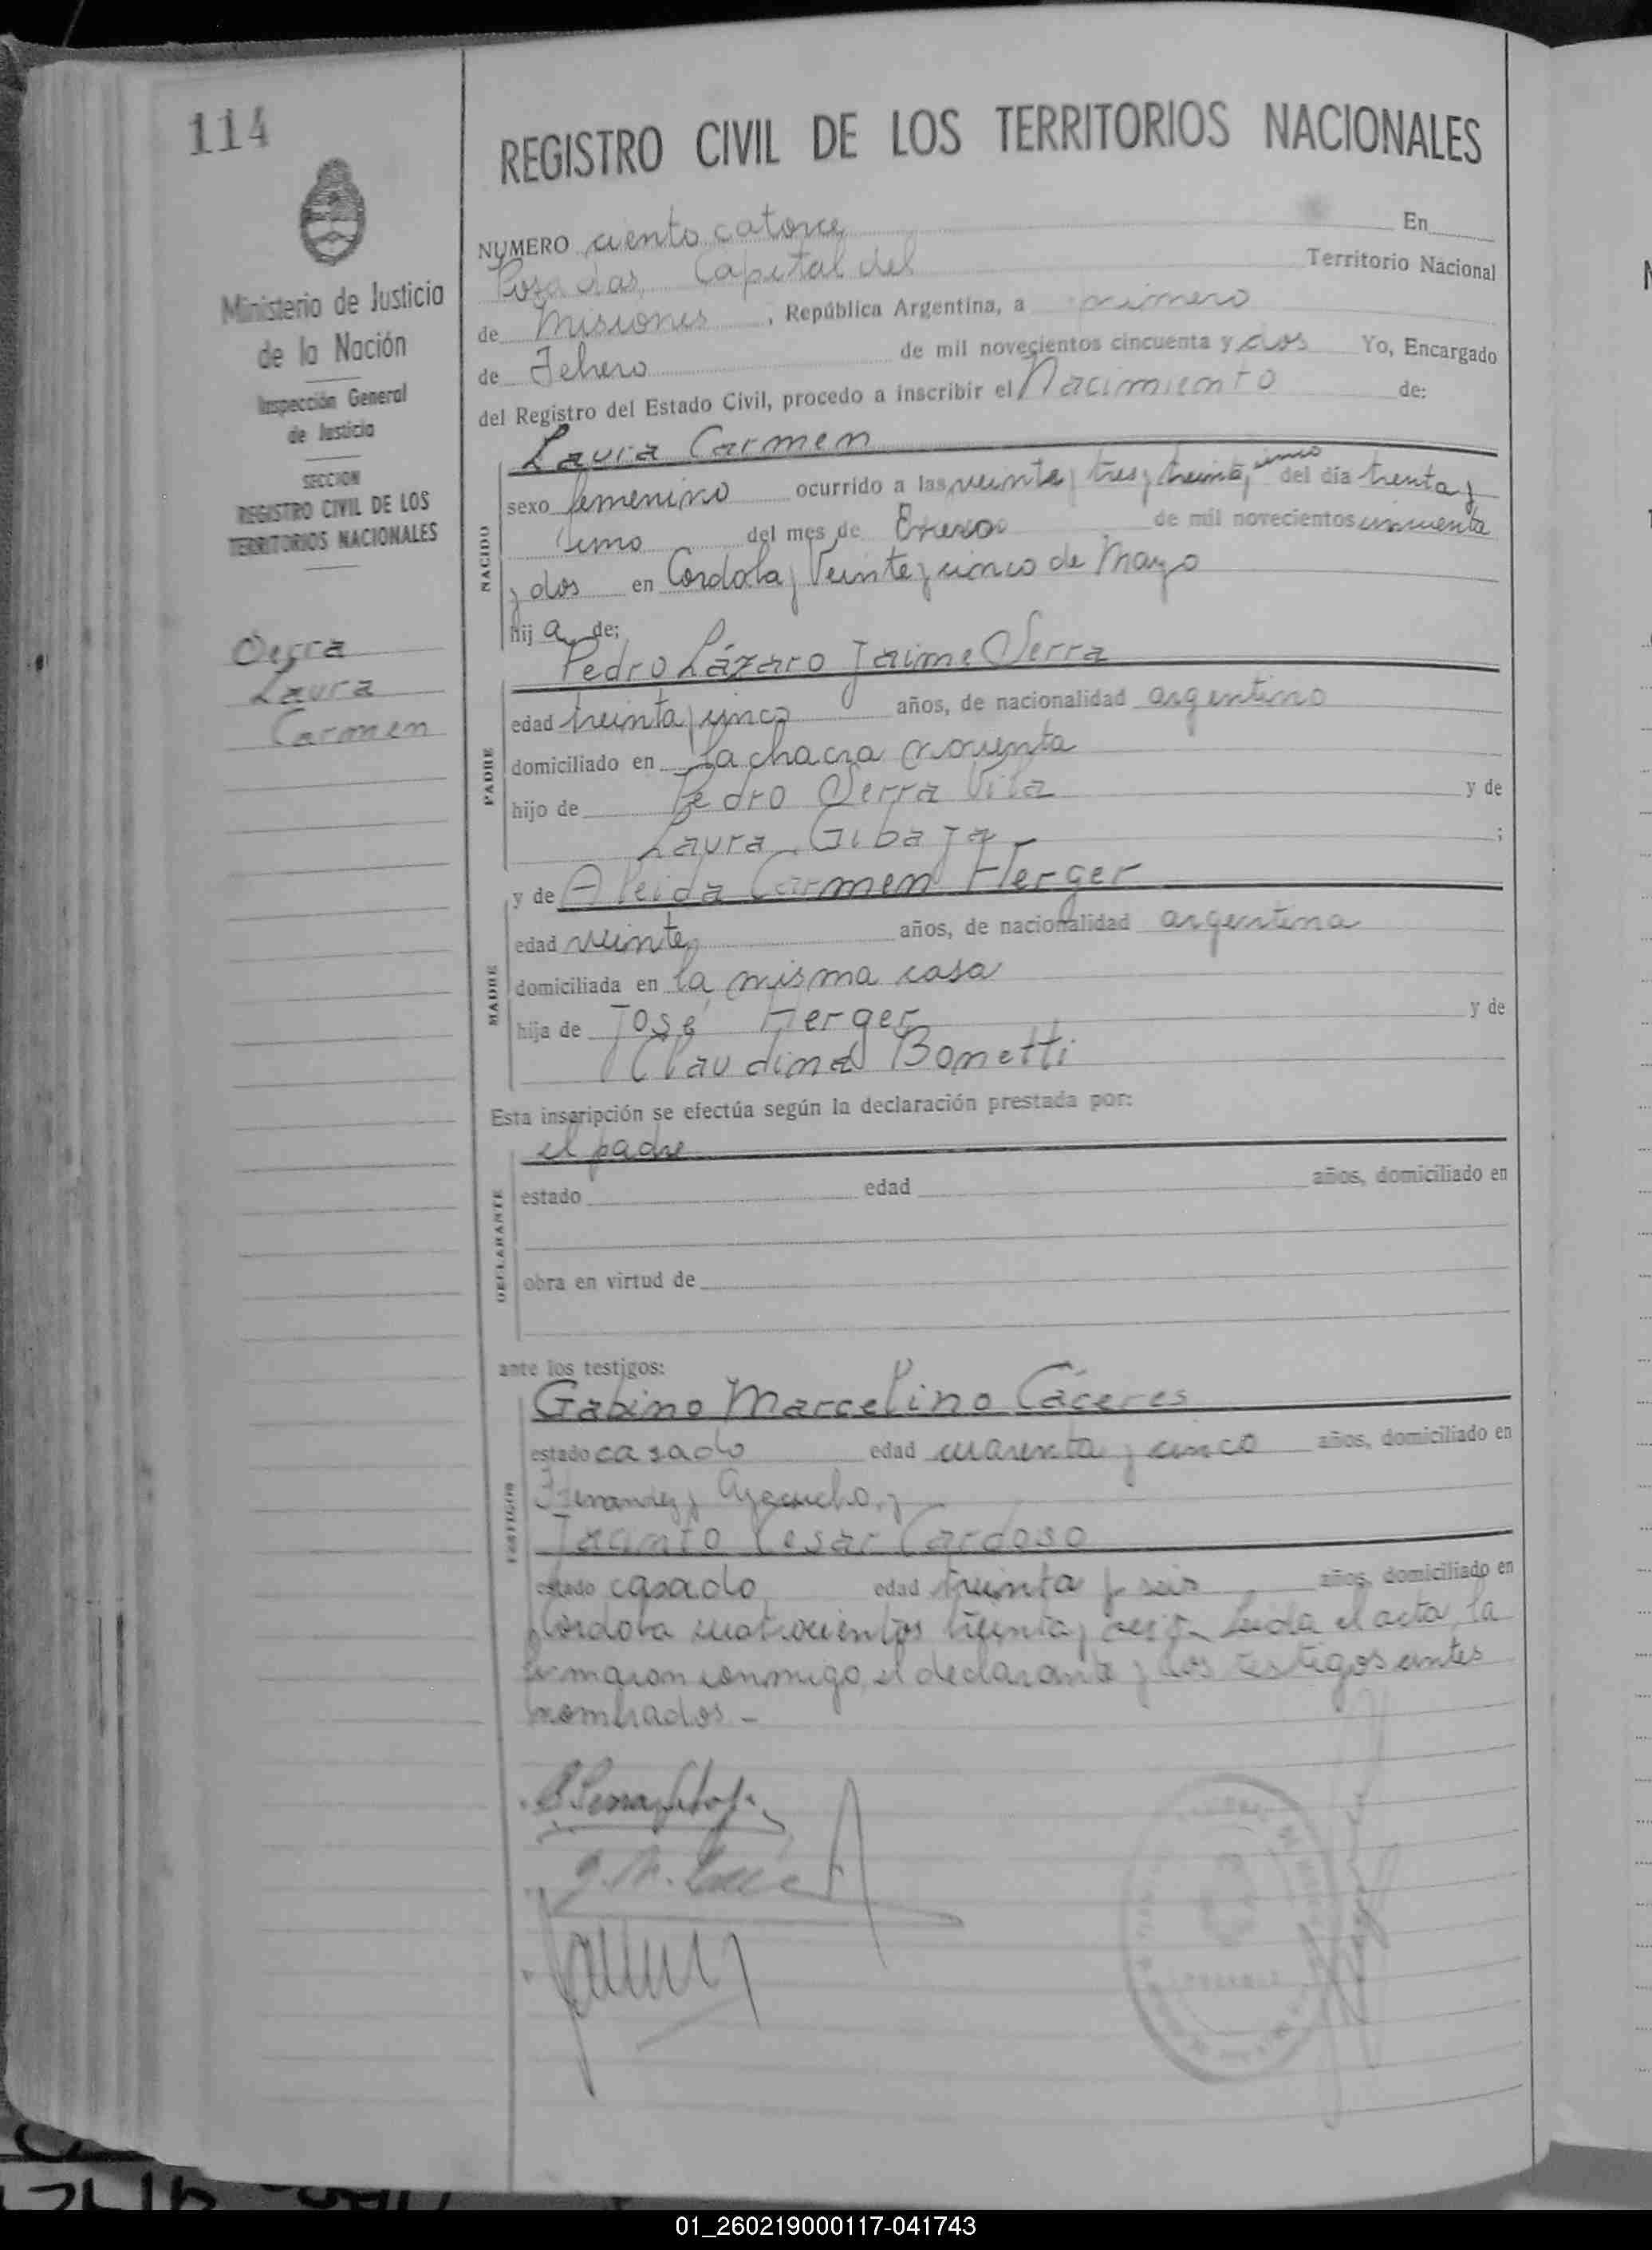 114
REGISTRO CIVIL DE LOS TERRITORIOS NACIONALES
Ministerio de Justicia
de la Nación
Inspección General
de Justicia
SECCION
REGISTRO CIVIL DE LOS
TERRITORIOS NACIONALES
Serra
Laura
Carmen
NUMERO ciento catorce En
Posadas, Capital del Territorio Nacional
de Misiones, República Argentina, a primero
de Febrero de mil novecientos cincuenta y dos Yo, Encargado
del Registro del Estado Civil, procedo a inscribir el Nacimiento de:
Laura Carmen
NACIDO
sexo femenino ocurrido a las veinte y tres y treinta y cinco del día treinta y
uno del mes de Enero de mil novecientos cincuenta
y dos en Cordoba y Veinte y cinco de Mayo
hija de;
Pedro Lázaro Jaime Serra
PADRE
edad treinta y cinco años, de nacionalidad argentino
domiciliado en la chacra noventa
hijo de Pedro Serra Vila y de
Laura Gibaja ;
y de Aleida Carmen Herger
MADRE
edad veinte años, de nacionalidad argentina
domiciliada en la misma casa
hija de José Herger y de
Claudina Bonetti
Esta inscripción se efectúa según la declaración prestada por:
el padre
DECLARANTE
estado edad años, domiciliado en
obra en virtud de
ante los testigos:
Gabino Marcelino Cáceres
TESTIGOS
estado casado edad cuarenta y cinco años, domiciliado en
Ayacucho, y
Jacinto Cesar Cardoso
estado casado edad treinta y seis años, domiciliado en
Cordoba cuatrocientos treinta y seis. Leida el acta, la
firmaron conmigo, el declarante y los testigos antes
nombrados.-
01_260219000117-041743